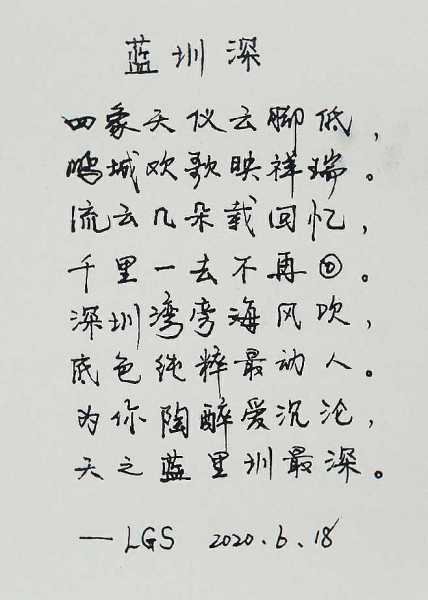 蓝圳深
四象天仪云脚低，
鹏城欢歌映祥瑞。
流云几朵载回忆，
千里一去不再回。
深圳湾旁海风吹，
底色纯粹最动人。
为你陶醉爱沉沦，
天之蓝里圳最深。
—LGS 2020.6.18